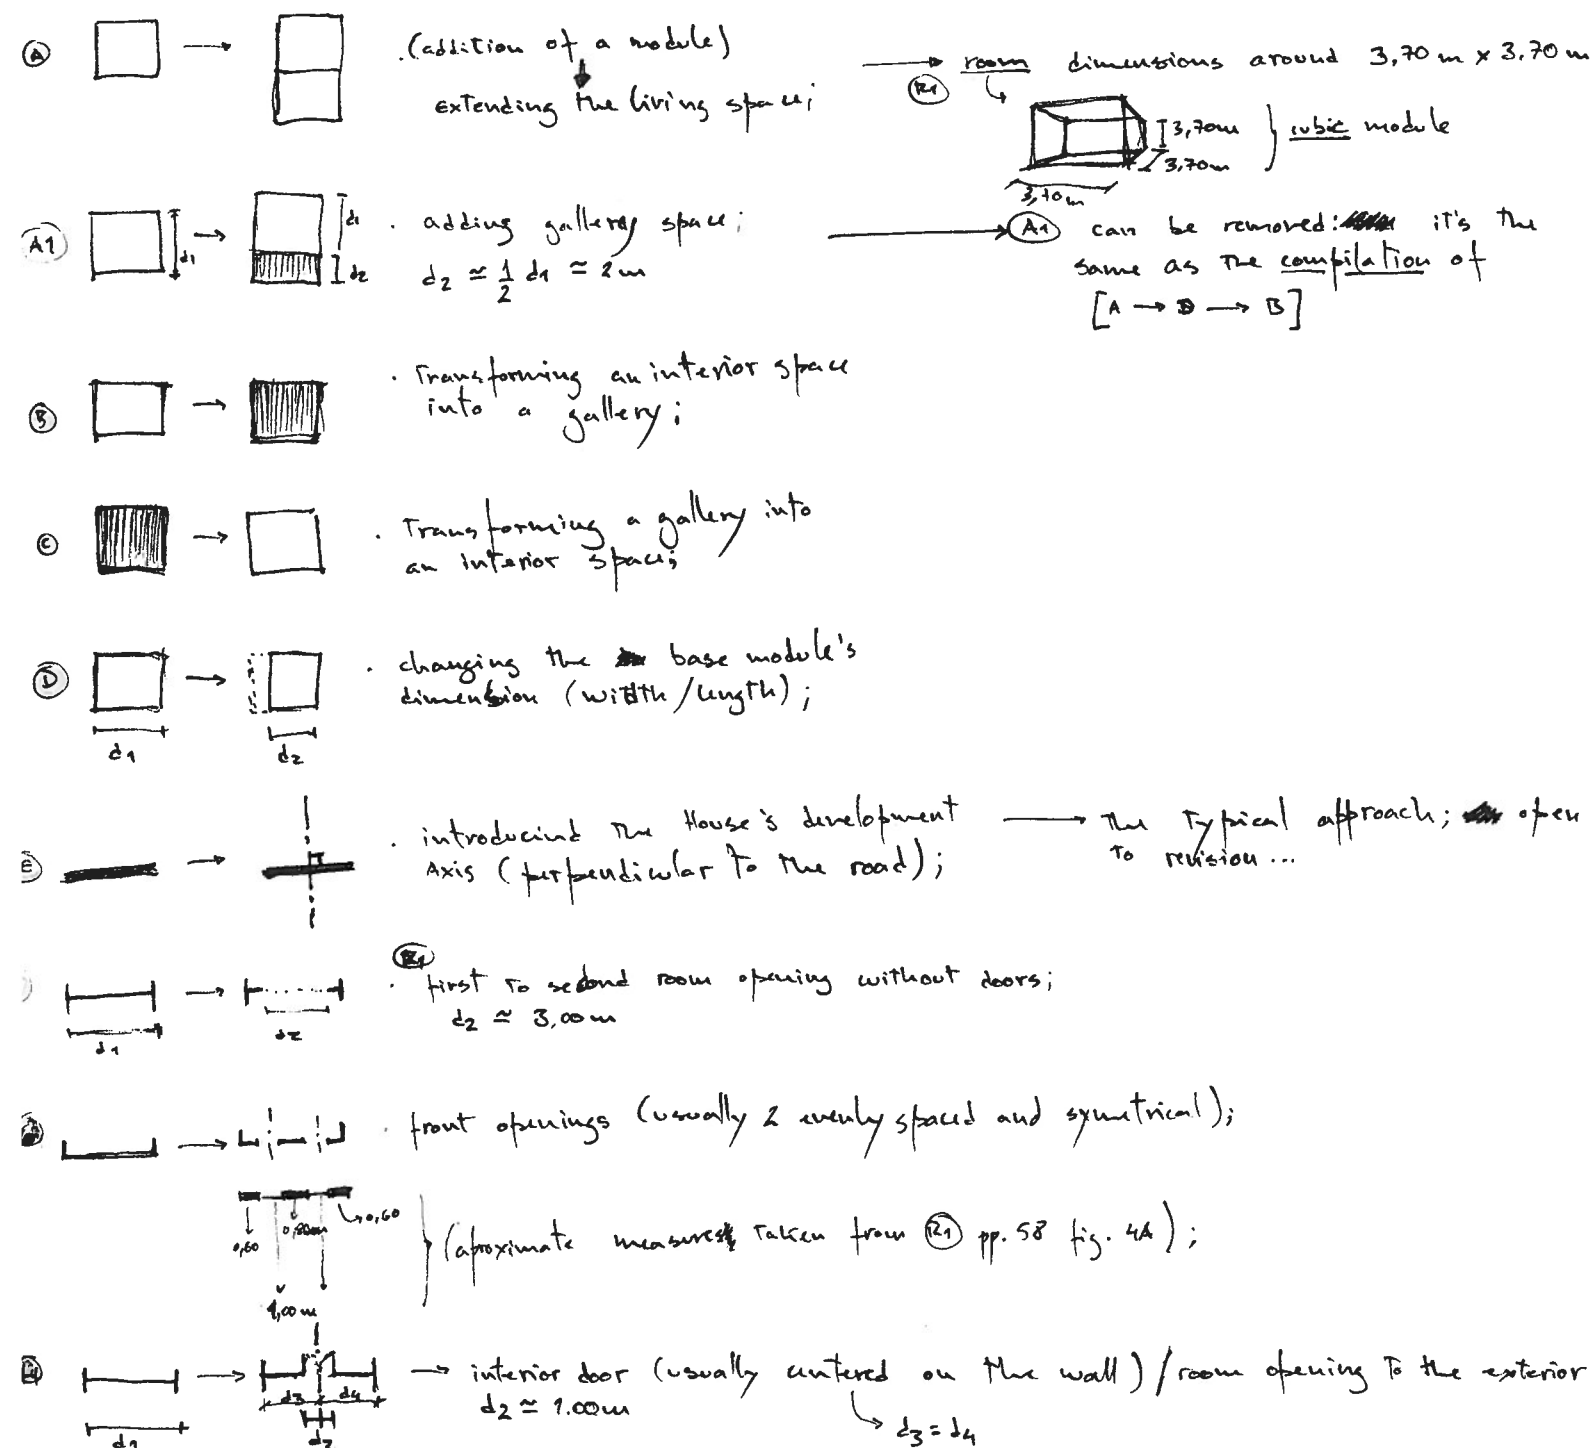 A
(addition of a module)
extending the living space;
R1
room dimensions around 3,70 m x 3,70 m
3,70m
3,70m
3,70m
cubic module
A1
d1
d1
d2
. adding gallery space;
d2 ≃ 1/2 d1 ≃ 2m
A1 can be removed: it's the
same as the compilation of
[A → D → B]
B
. Transforming an interior space
into a gallery;
C
. Transforming a gallery into
an interior space;
D
d1
d2
. changing the base module's
dimension (width/length);
E
. introducind the House's development
Axis (perpendicular to the road);
The Typical approach; open
to revision...
R1
d1
d2
. first to second room opening without doors;
d2 ≃ 3,00m
. front openings (usually 2 evenly spaced and symetrical);
0,60
0,80m
0,60
1,00m
(aproximate measures Taken from R1 pp. 58 fig. 4A);
d1
d3
d4
d2
interior door (usually centered on the wall) / room opening to the exterior
d2 ≃ 1.00m
d3 = d4